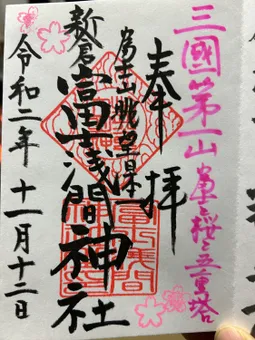 三國第一山 富士と桜と五重塔
奉拝
富士山眺望日本一
新倉冨士浅間神社
令和二年十一月十二日